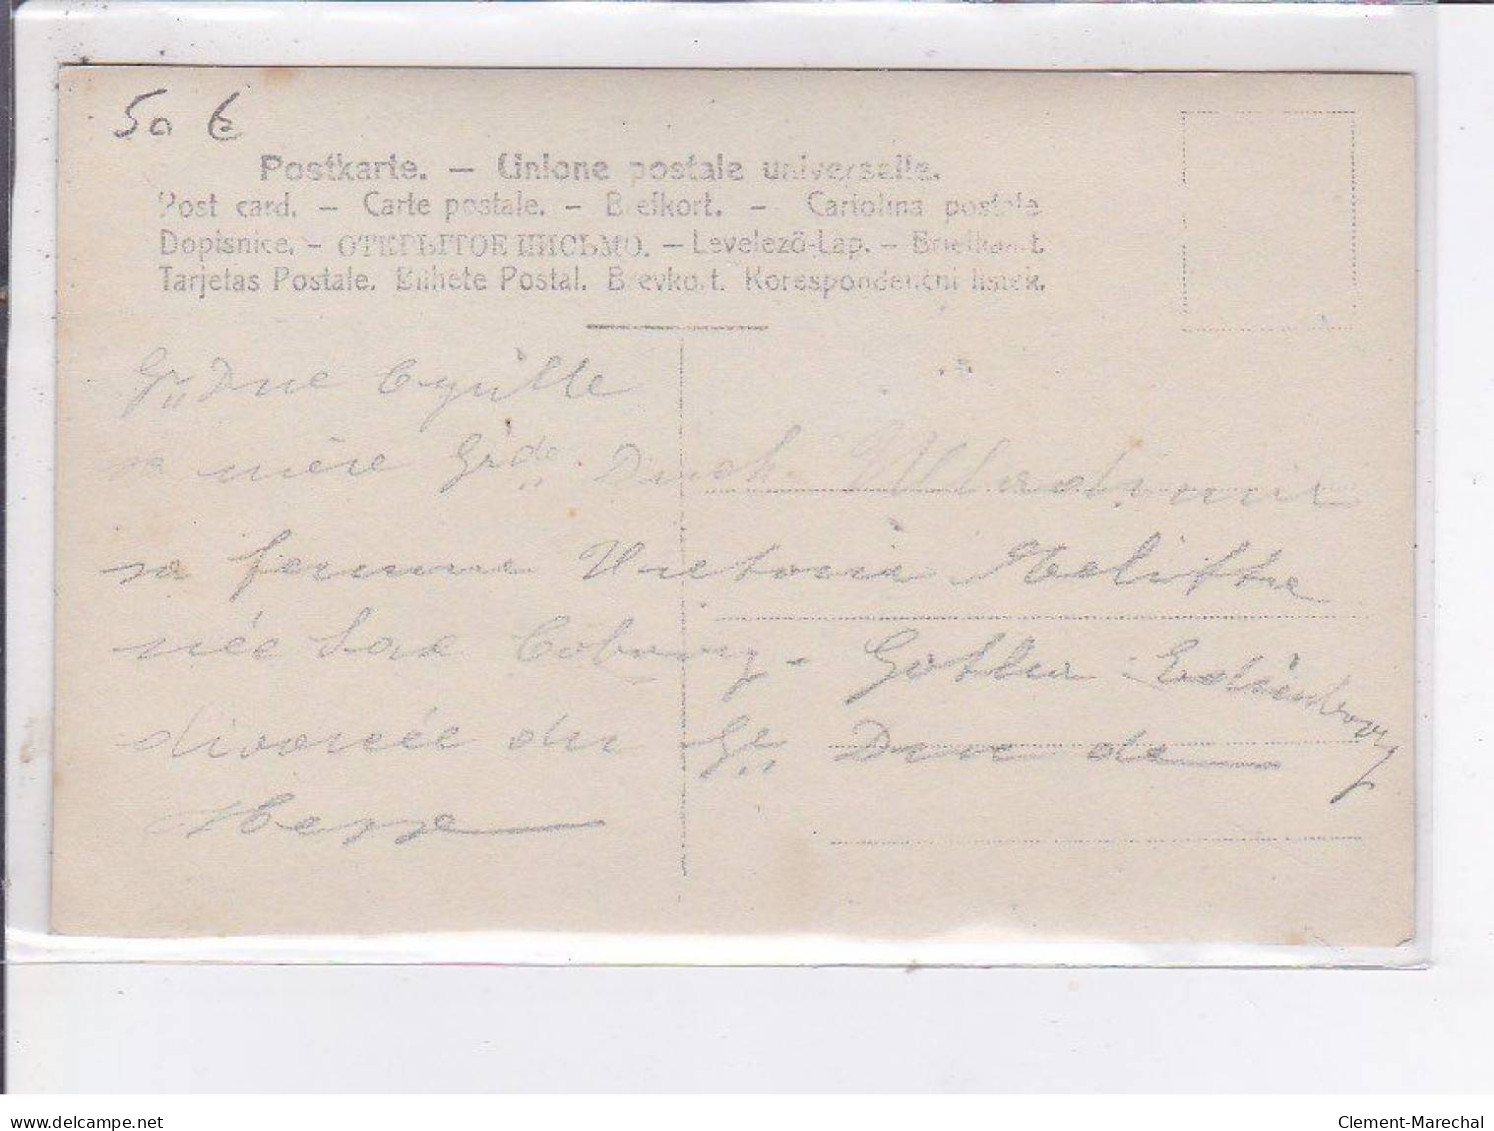 50 €
Postkarte. – Unione postale universelle.
Post card. – Carte postale. – Brefkort. – Cartolina postale
Dopisnice. – ОТКРЫТОЕ ПИСЬМО. – Levelező-Lap. – Briefkaart.
Tarjetas Postale. Bilhete Postal. Brevkort. Korespondencni listek.
Gr Duc Cyrille
sa mère Grde Duch. Wladimir
sa femme Victoria Melitta
née Saxe Cobourg - Gotha Edimbourg
divorcée du Gd Duc de
Hesse
delcampe.net
Clement-Marechal